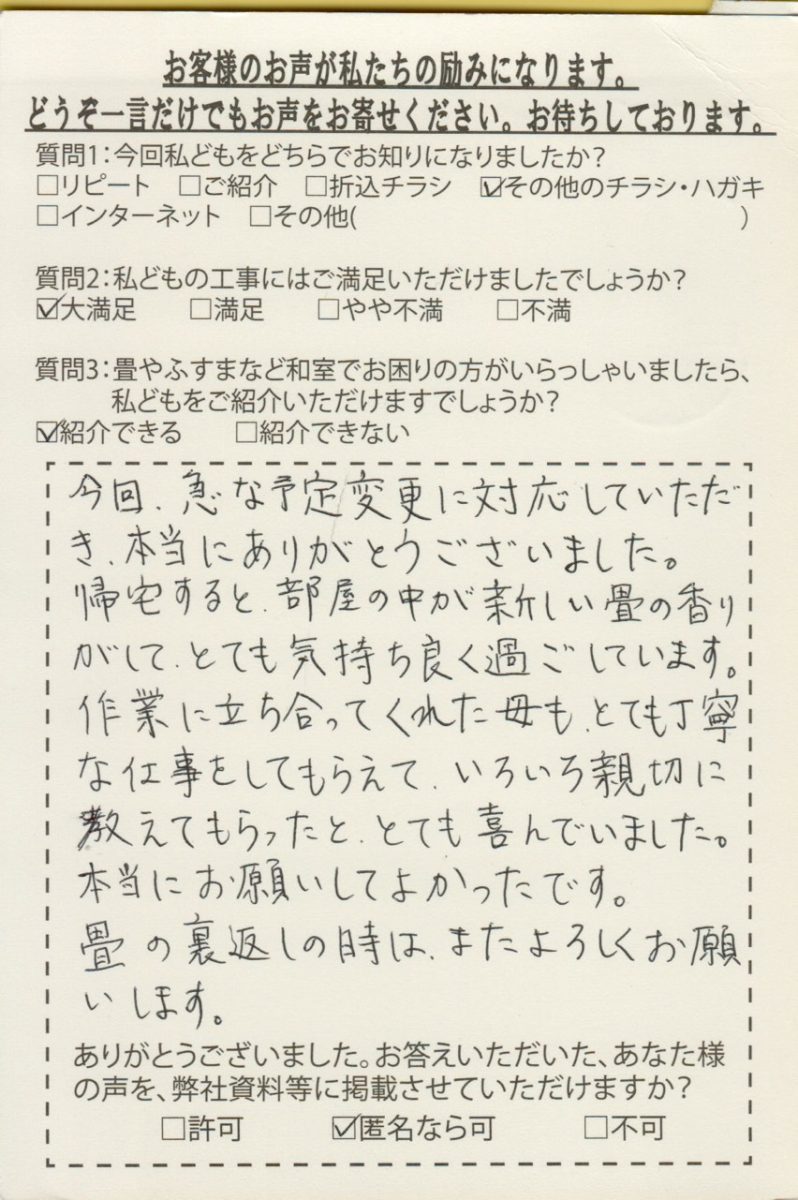 お客様のお声が私たちの励みになります。
どうぞ一言だけでもお声をお寄せください。お待ちしております。
質問1:今回私どもをどちらでお知りになりましたか?
□リピート □ご紹介 □折込チラシ ☑その他のチラシ・ハガキ
□インターネット □その他( )
質問2:私どもの工事にはご満足いただけましたでしょうか?
☑大満足 □満足 □やや不満 □不満
質問3:畳やふすまなど和室でお困りの方がいらっしゃいましたら、
私どもをご紹介いただけますでしょうか?
☑紹介できる □紹介できない
今回、急な予定変更に対応していただ
き、本当にありがとうございました。
帰宅すると、部屋の中が新しい畳の香り
がして、とても気持ち良く過ごしています。
作業に立ち合ってくれた母も、とても丁寧
な仕事をしてもらえて、いろいろ親切に
教えてもらったと、とても喜んでいました。
本当にお願いしてよかったです。
畳の裏返しの時は、またよろしくお願
いします。
ありがとうございました。お答えいただいた、あなた様
の声を、弊社資料等に掲載させていただけますか?
□許可 ☑匿名なら可 □不可